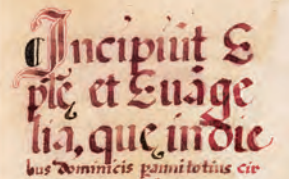 ¶ Incipiūt E
plę et Euāge
lia, quę in die
bus dominicis p anni totius cir